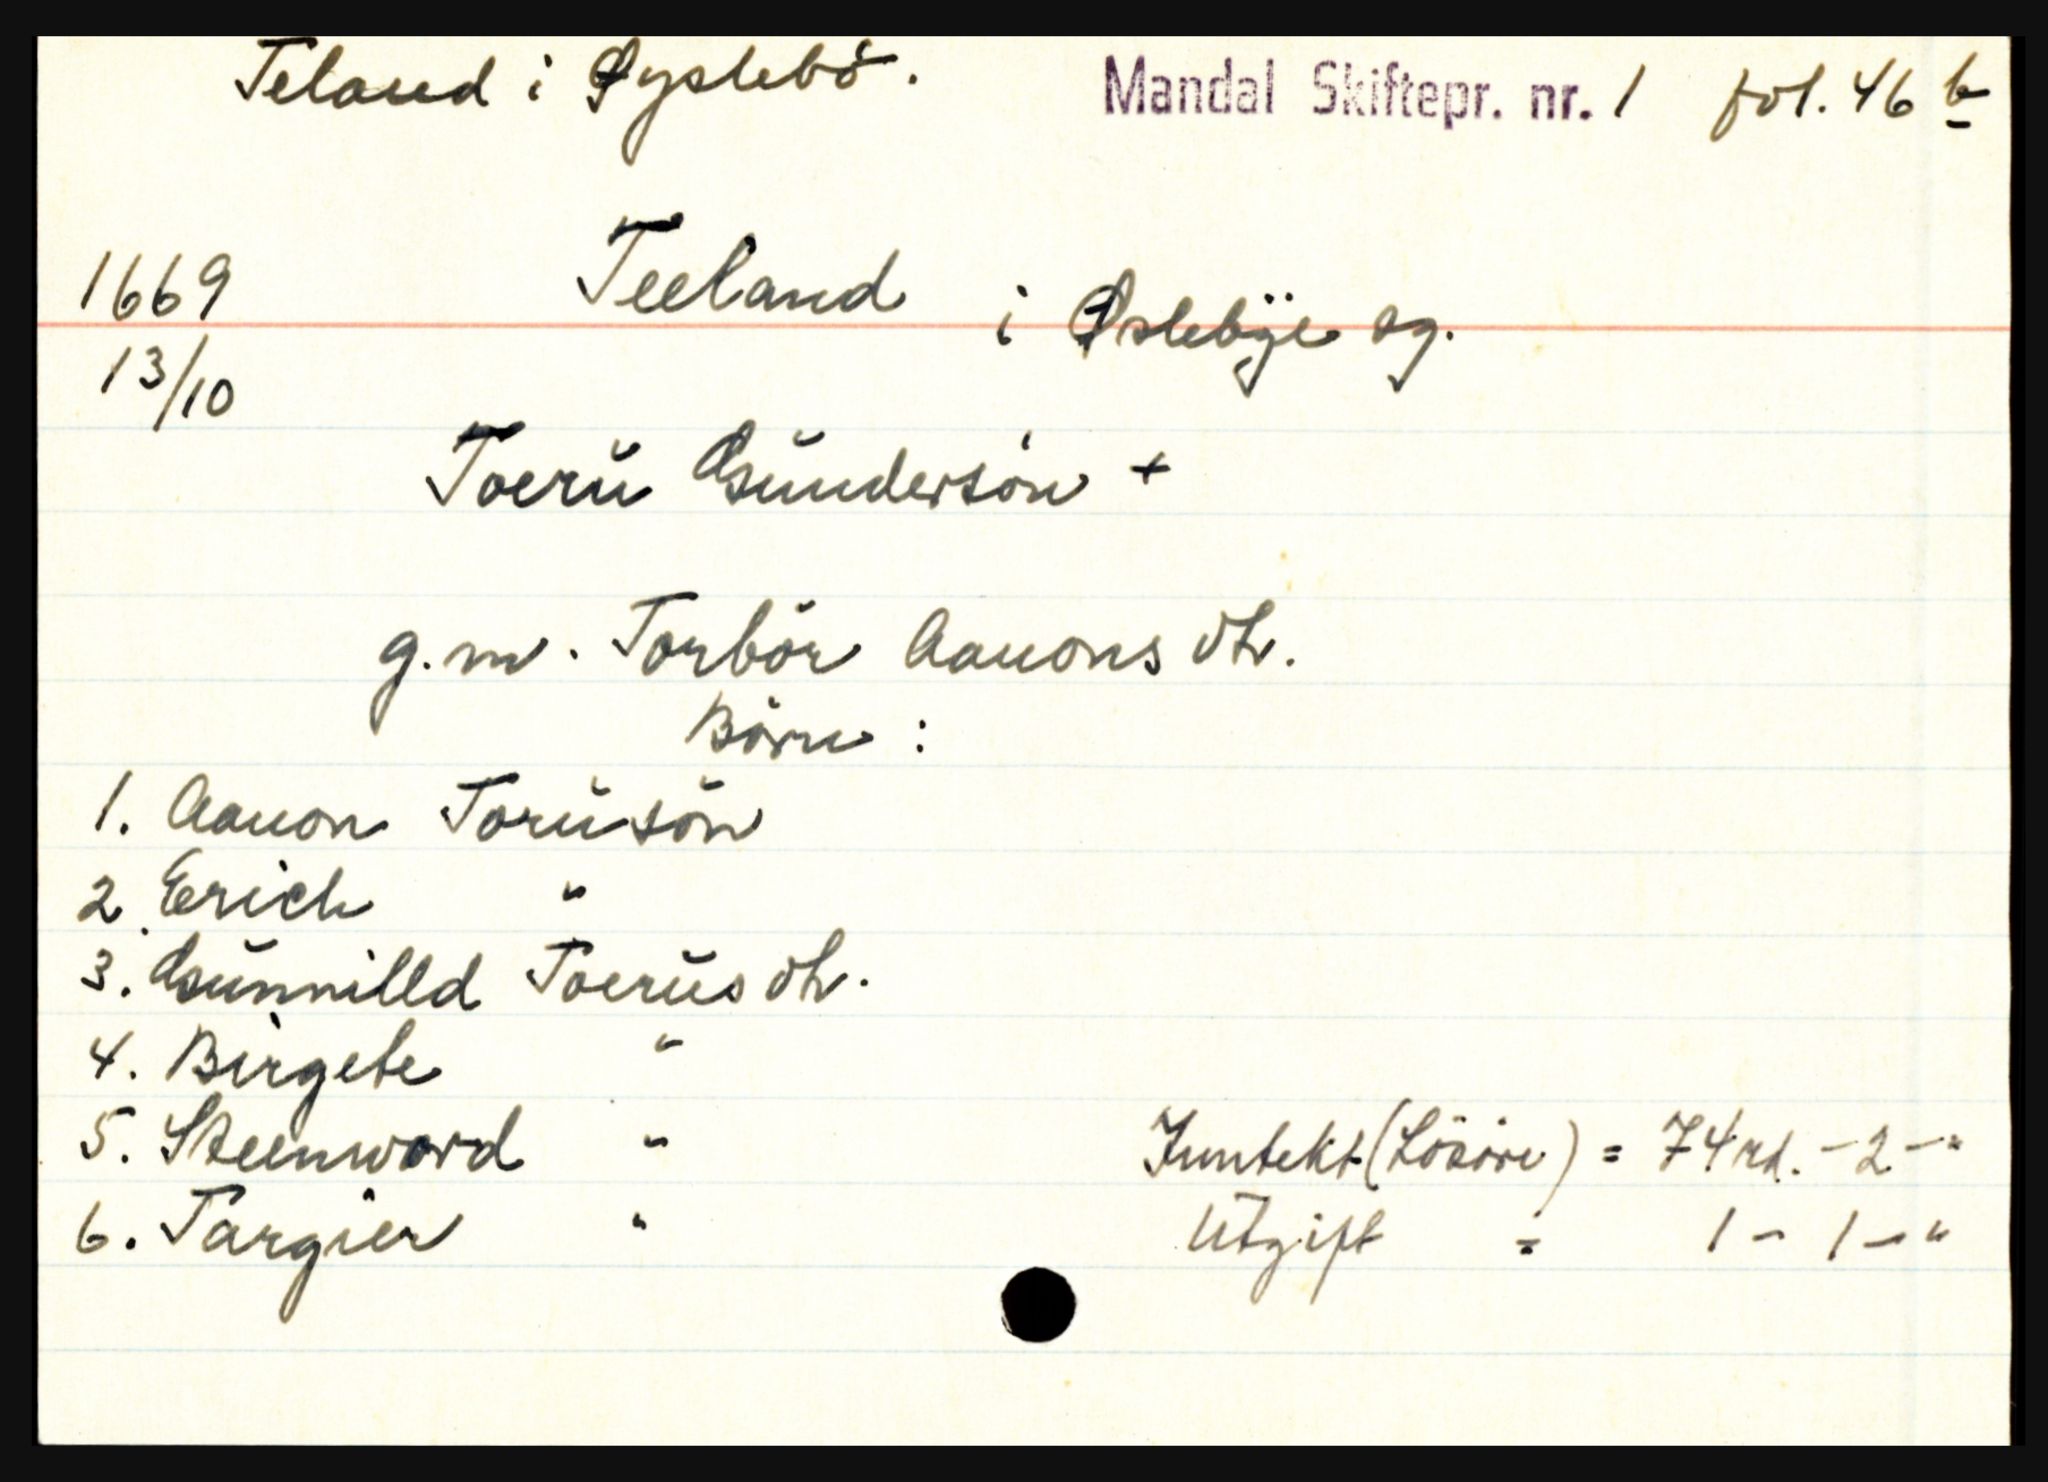 Teland i Øyslebö. Mandal Skiftepr. nr. 1 fol. 46 b
1669 Teeland i Øslebÿe sg.
13/10
Toerŭ Gŭndersön +
g. m. Torbör Aanons dtr.
Börn :
1. Aanon Torŭsön
2. Erich "
3. Gŭnnilld Toerŭs dtr.
4. Birgete "
5. Steenword "
6. Targier "
Inntekt (Lösöre) = 74 rd. - 2 - "
Utgift = 1 - 1 - "